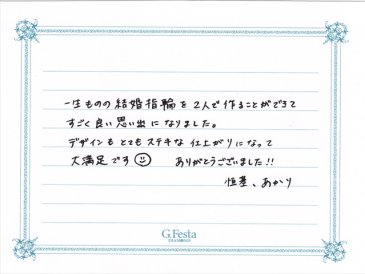 一生ものの結婚指輪を2人で作ることができて
すごく良い思い出になりました。
デザインもとてもステキな仕上がりになって
大満足です☺ ありがとうございました!!
恒基、あかり
G.Festa